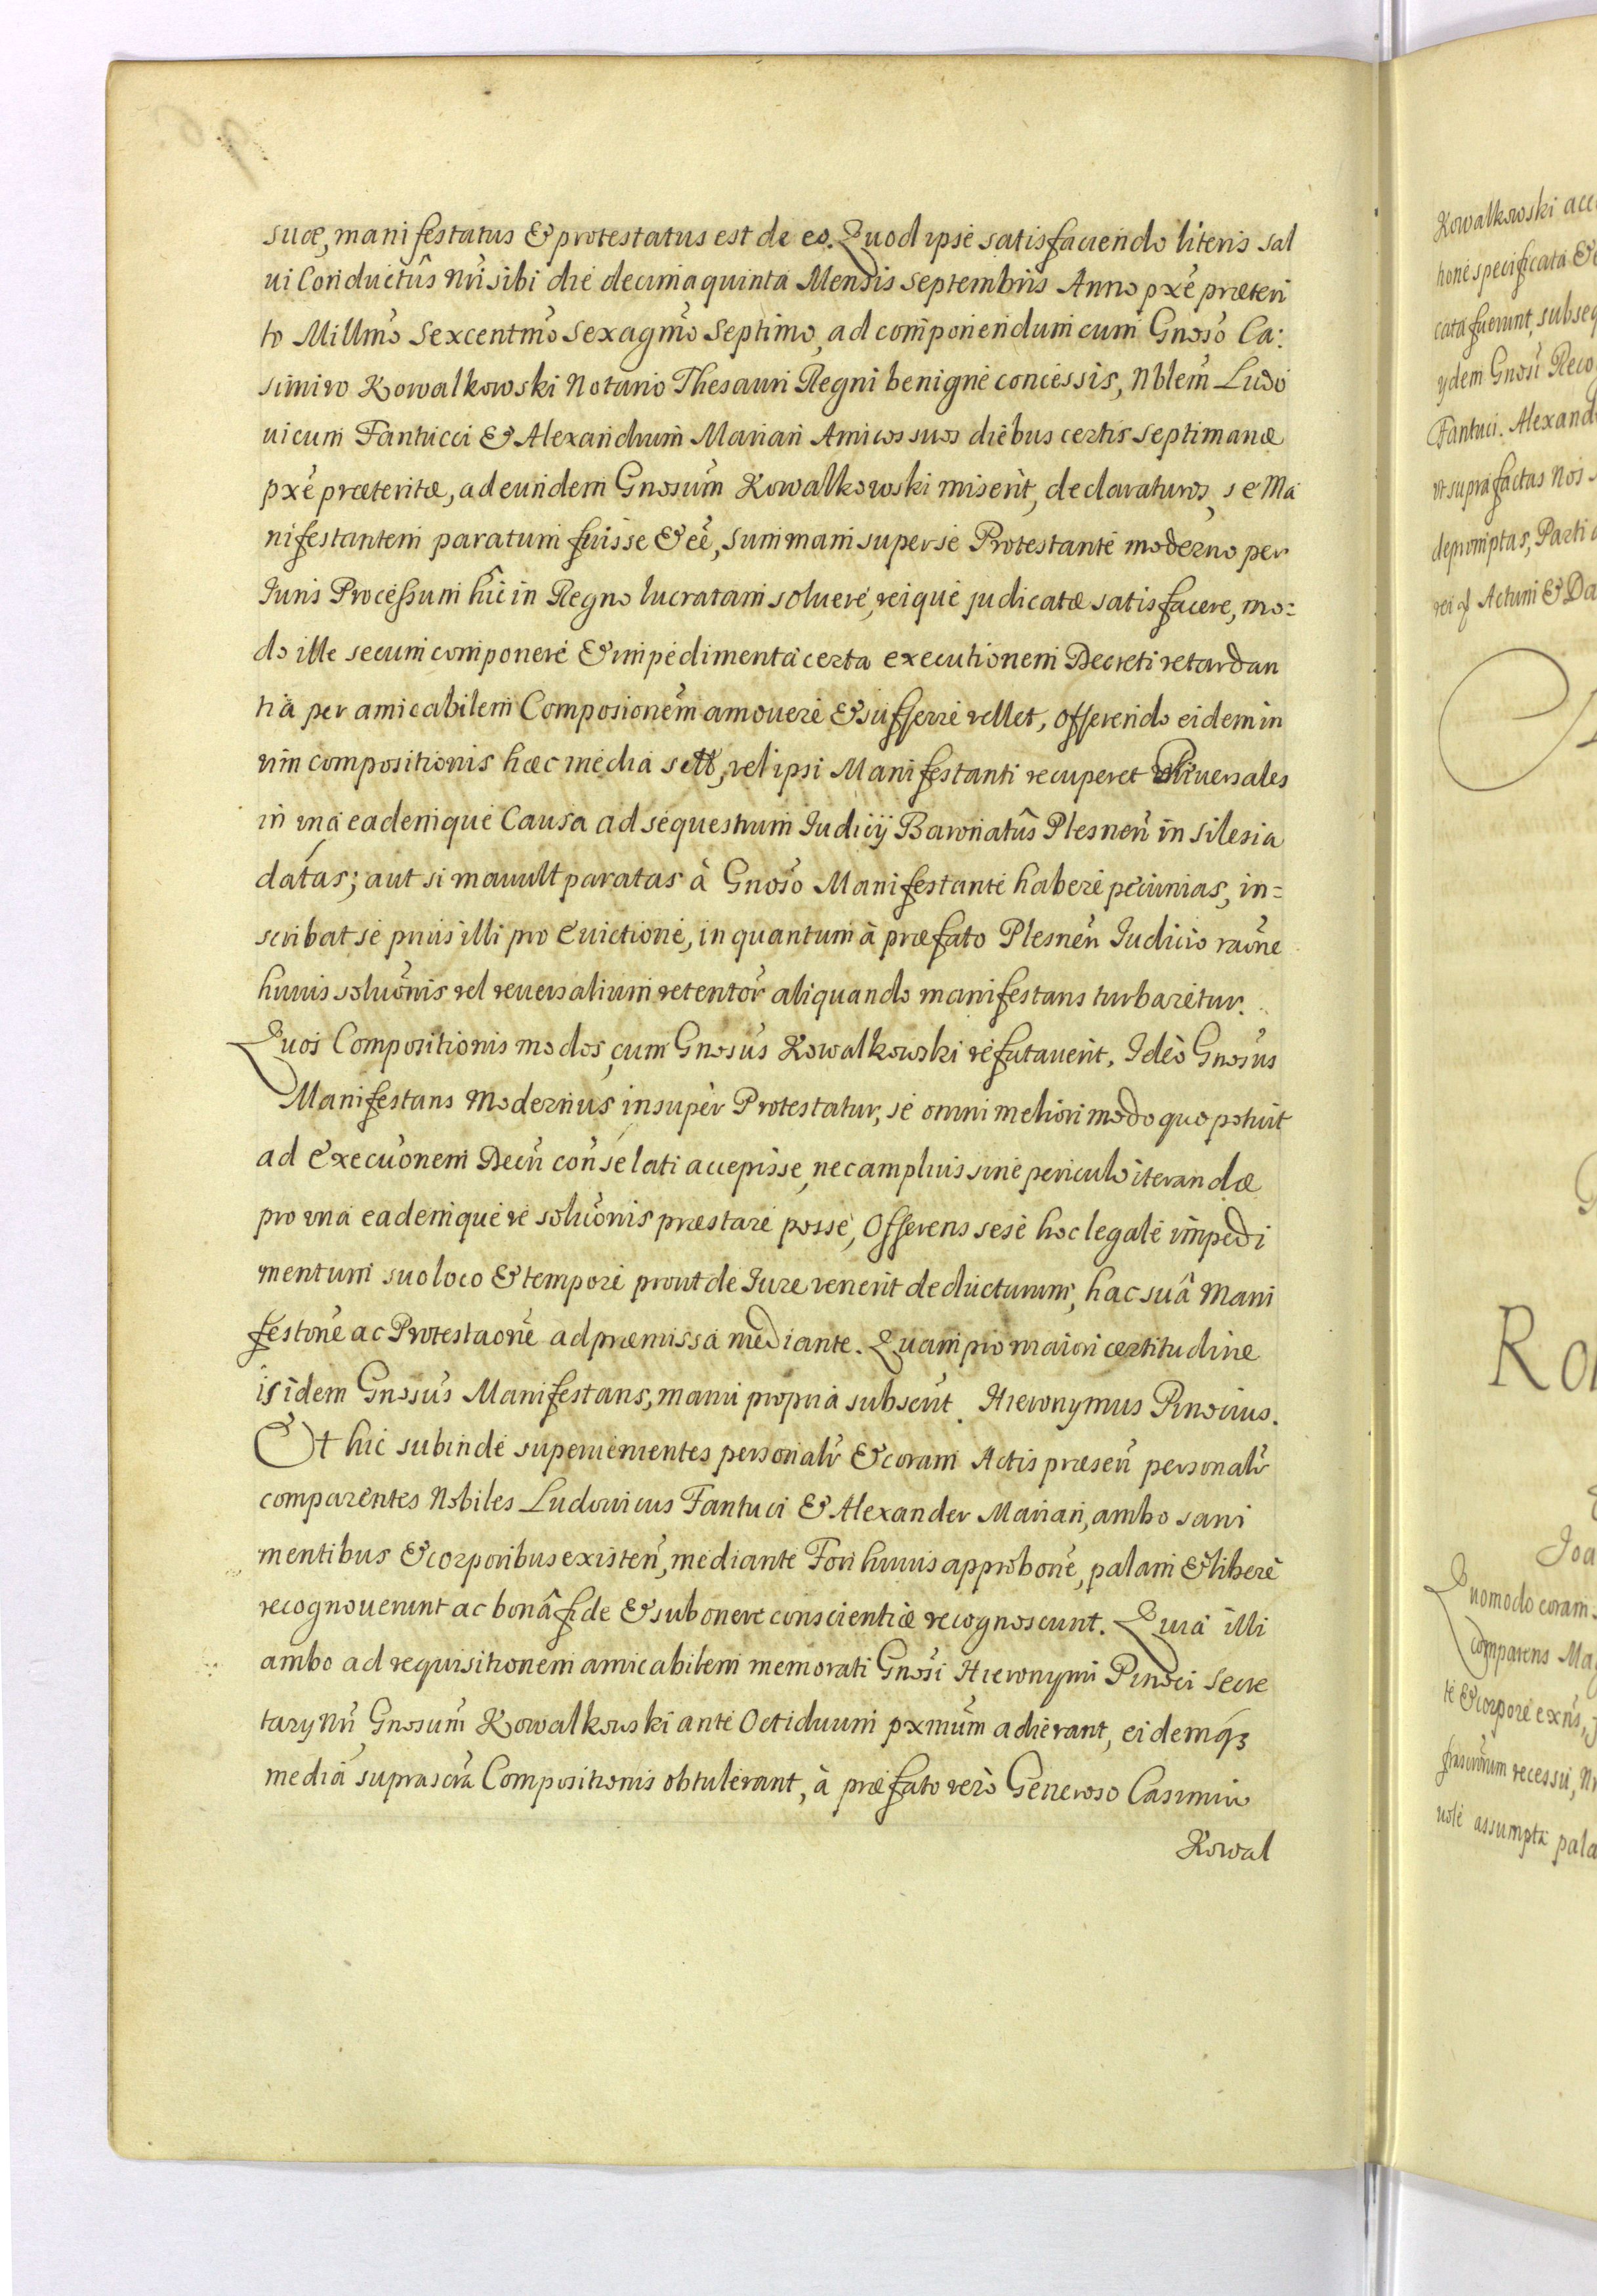 suæ, manifestatus & protestatus est de eo. Quod ipse satisfaciendo literis sal
ui Conductûs nri sibi die decima quinta Mensis Septembris Anno pxe præteri
to Millmo Sexcentmo Sexagmo Septimo, ad componendum cum Gnoso Ca:
simiro Kowalkowski Notario Thesauri Regni benigne concessis, Nblem Ludo
uicum Fantucci & Alexandrum Mariani Amicos suos diebus certis septimanæ
pxe præteritæ, ad eundem Gnosum Kowalkowski miserit, declaraturos, se Ma
nifestantem paratum fuisse & eê, summam super se Protestante moderno per
Iuris Processum hîc in Regno lucratam soluere, reique judicatæ satisfacere, mo=
do ille secum componere & impedimenta certa executionem Decreti retardan
tia per amicabilem Composionem amouere & sufferre vellet, offerendo eidem in
vim compositionis hæc media sctt, vel ipsi Manifestanti recuperet Reuersales
in vna eademque Causa ad sequestrum Iudicij Baronatûs Plesnen in Silesia
datas; aut si mauult paratas à Gnoso Manifestante habere pecunias, in=
scribat se prius illi pro Euictione, in quantum à præfato Plesnen Iudicio raone
huius soluonis vel reuersalium retentor aliquando manifestans turbaretur.
Quos Compositionis modos, cum Gnosus Kowalkowski refutauerit, Ideò Gnosus
Manifestans Modernus insuper Protestatur, se omni meliori modo quo potuit
ad Execuonem Decri con se lati accepisse, nec amplius sine periculo iterandæ
pro vna eademque re soluonis præstare posse, Offerens sese hoc legale impedi
mentum suo loco & tempore prout de Iure venerit deducturum, hac suâ Mani
festone ac Protestaone ad præmissa mediante. Quam pro maiori certitudine
is idem Gnosus Manifestans, manu propria subscrit. Hieronymus Pinocius.
Et hic subinde superuenientes personalr & coram Actis præsen personalr
comparentes Nobiles Ludouicus Fantuci & Alexander Mariani, ambo sani
mentibus & corporibus existen, mediante Fori huius approbone, palam & libere
recognouerunt ac bonâ fide & sub onere conscientiæ recognoscunt. Quia illi
ambo ad requisitionem amicabilem memorati Gnosi Hieronymi Pinoci Secre
tary nri Gnosum Kowalkowski ante Octiduum pxmum adierant, eidemq3
media suprascra Compositionis obtulerant, à præfato verò Generoso Casimiro
Kowal
Kowalkowski acc
hone specificata &
cata fuerunt, subseq
ydem Gnosi Reco
Fantuci. Alexand
vt supra factas Nos
depromptas, Parti
rei Actum & Da
Ro
Joa
Quomodo coram
comparens Ma
te & corpore exns,
recessu, Nr
assumpta pala